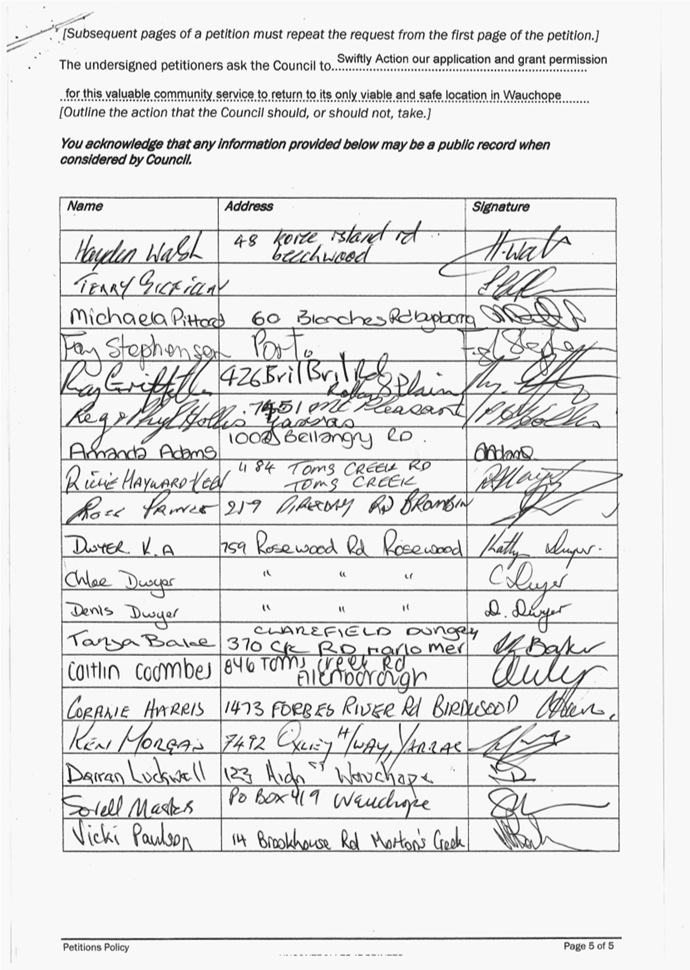 [Subsequent pages of a petition must repeat the request from the first page of the petition.]
The undersigned petitioners ask the Council to.....Swiftly Action our application and grant permission
for this valuable community service to return to its only viable and safe location in Wauchope
[Outline the action that the Council should, or should not, take.]
You acknowledge that any information provided below may be a public record when
considered by Council.
Name Address Signature
Hayden Walsh 48 island rd H.Wal
beechwood
TERRY
Michaela Pittard 60 Blanches Rd
Fay Stephenson Port.
Ray 426 Bril Bril Rd
Rollands Plain
Reg & Phyl Hollis 7451 Mt Pleasant
Amanda Adams 1002 Bellangry RD.
HAYWARD 484 TOMS CREEK RD
TOMS CREEK
219 RD BROMBIN
DWYER K.A 759 Rosewood Rd Rosewood Kathy Dwyer.
Chloe Dwyer " " " C Dwyer
Denis Dwyer " " " D. Dwyer
CLAREFIELD DUNGAY
Tanya Baker 370 CK RD Marlo Mer Baker
Caitlin Coombes 846 Toms Creek Rd
Ellenborough
CORALIE HARRIS 1473 FORBES RIVER Rd BIRDWOOD
KEN MORGAN 7492 OXLEY H/WAY, YARRAS
Darran Luckwell 123 High ST Wauchope
Masters PO Box 419 Wauchope
Vicki Paulson 14 Brookhouse Rd Morton's Creek
Petitions Policy Page 5 of 5